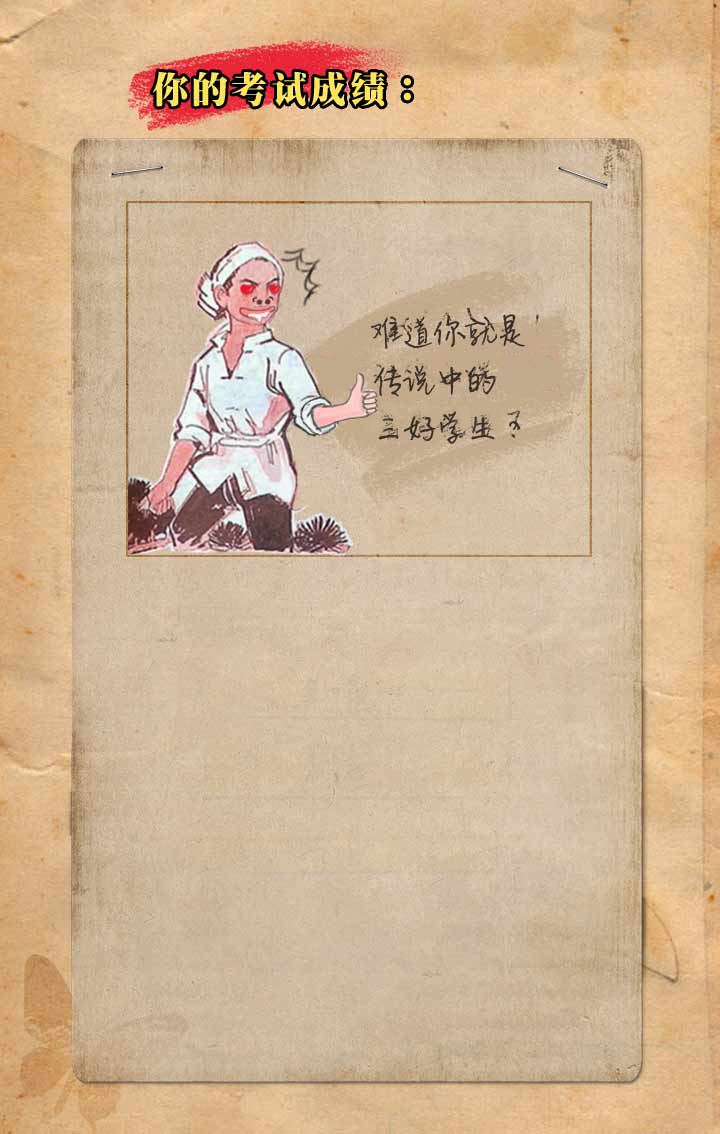 你的考试成绩：
难道你就是
传说中的
三好学生？